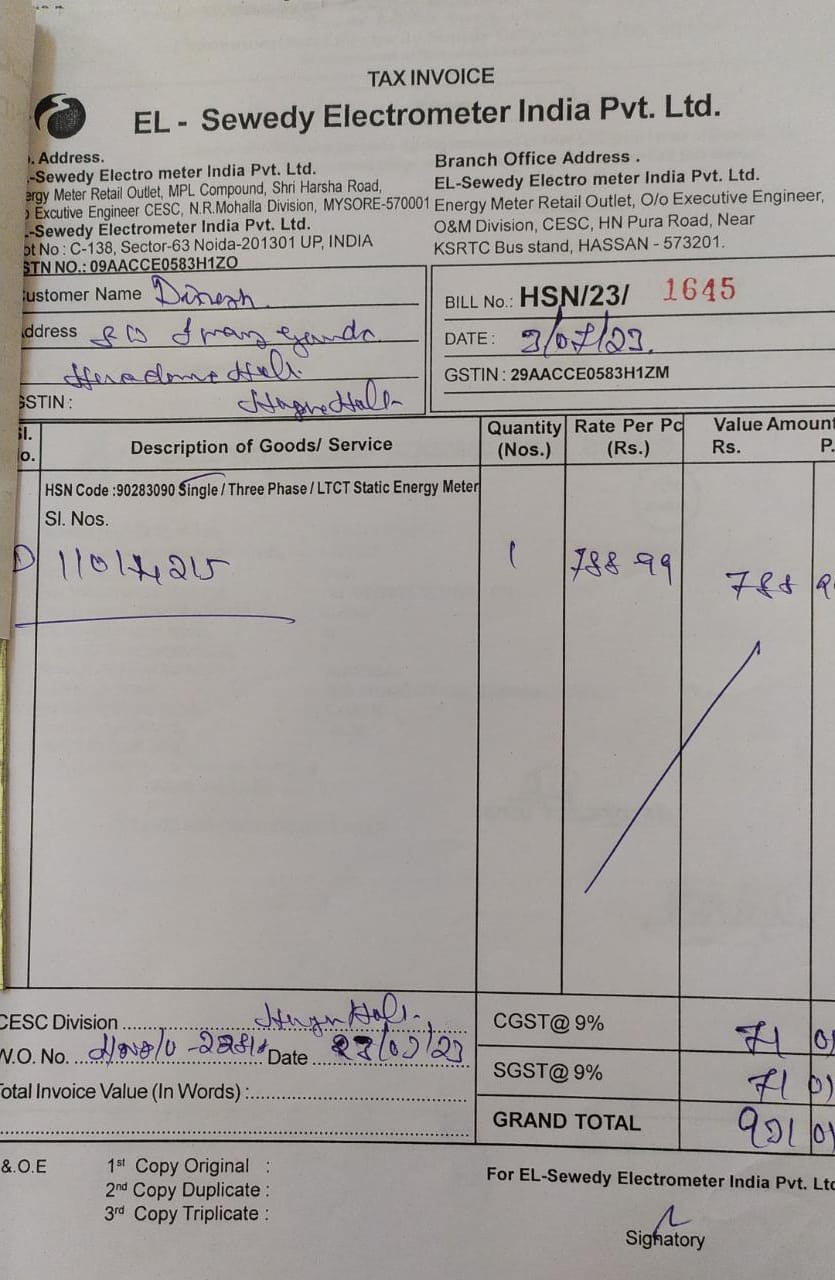 TAX INVOICE
EL - Sewedy Electrometer India Pvt. Ltd.
. Address.
-Sewedy Electro meter India Pvt. Ltd.
ergy Meter Retail Outlet, MPL Compound, Shri Harsha Road,
Excutive Engineer CESC, N.R.Mohalla Division, MYSORE-570001
-Sewedy Electrometer India Pvt. Ltd.
ot No : C-138, Sector-63 Noida-201301 UP, INDIA
STN NO.: 09AACCE0583H1ZO
Branch Office Address .
EL-Sewedy Electro meter India Pvt. Ltd.
Energy Meter Retail Outlet, O/o Executive Engineer,
O&M Division, CESC, HN Pura Road, Near
KSRTC Bus stand, HASSAN - 573201.
ustomer Name Dinesh
ddress
GSTIN :
BILL No.: HSN/23/ 1645
DATE : 3/07/23
GSTIN : 29AACCE0583H1ZM
Sl. o. Description of Goods/ Service Quantity (Nos.) Rate Per Pc (Rs.) Value Amount Rs. P.
HSN Code :90283090 Single / Three Phase / LTCT Static Energy Meter
Sl. Nos.
1 788 99 788 9
CESC Division
W.O. No. Date
otal Invoice Value (In Words) :
CGST@ 9% 71 01
SGST@ 9% 71 01
GRAND TOTAL 931 01
&.O.E
1st Copy Original :
2nd Copy Duplicate :
3rd Copy Triplicate :
For EL-Sewedy Electrometer India Pvt. Ltd
Signatory